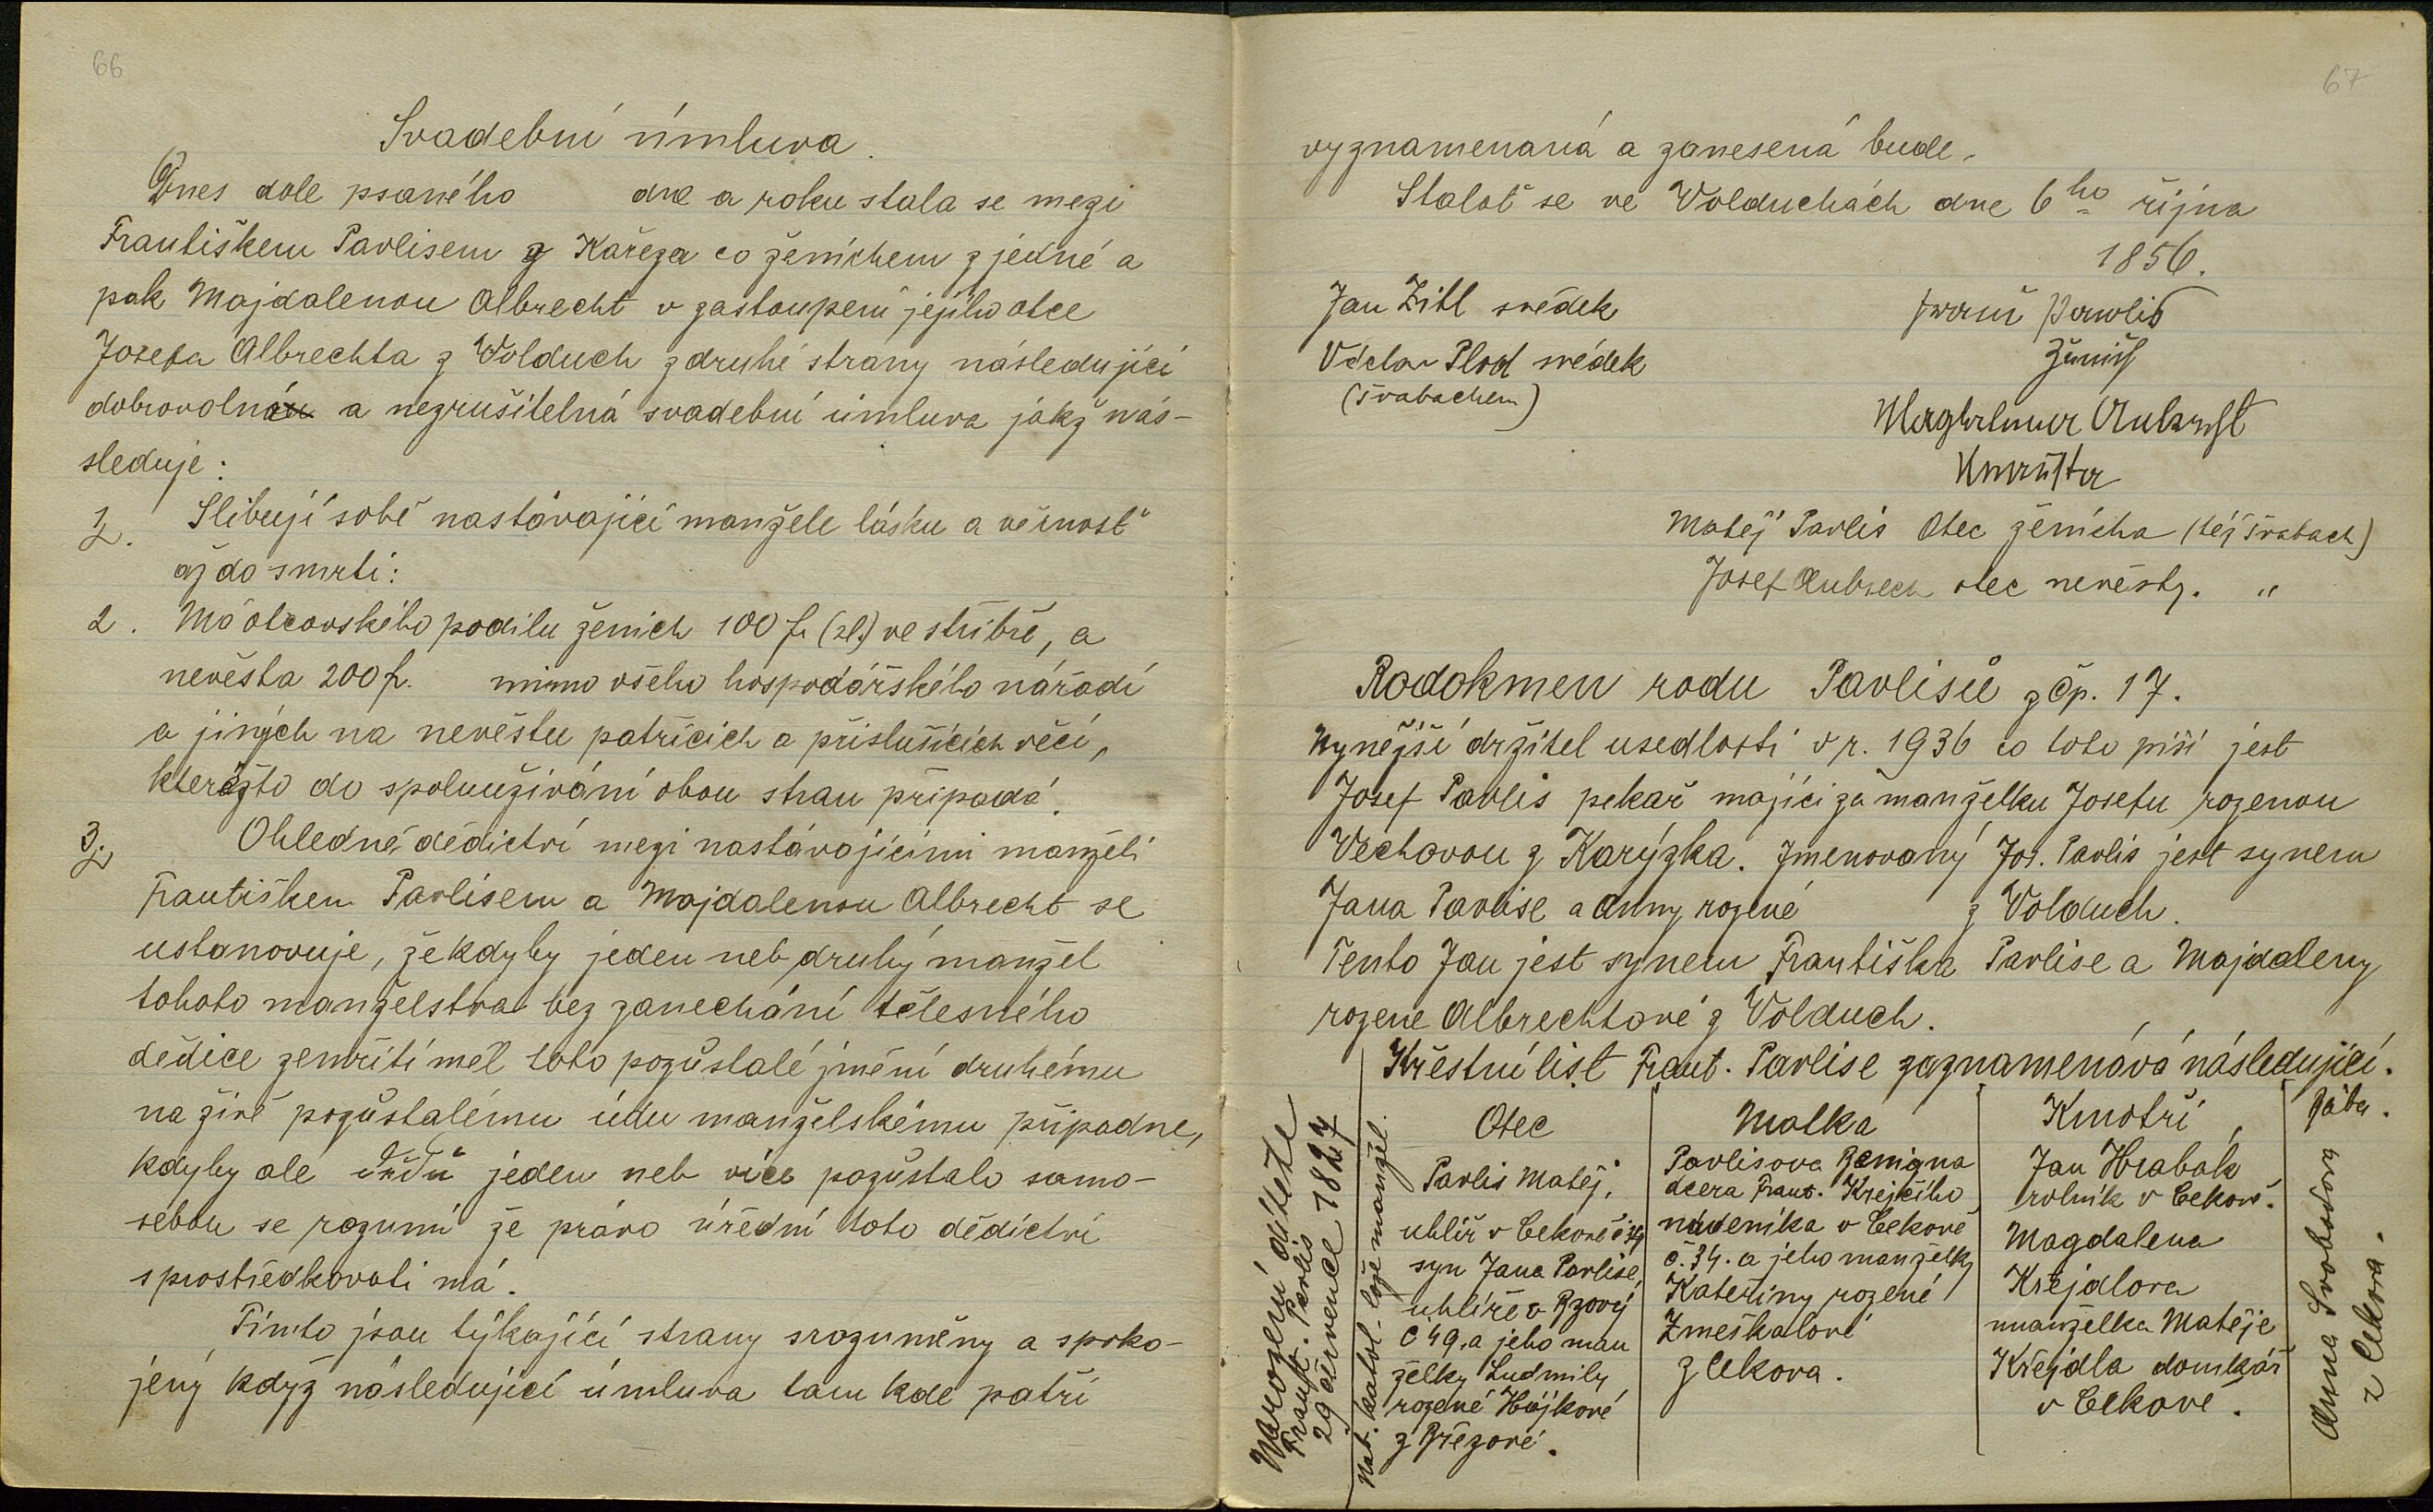 66
Svadební úmluva.
Dnes dole psaného dne a roku stala se mezi
Františkem Pavlisem z Kařeza co ženichem z jedné a
pak Majdalenou Albrecht v zastoupení jejího otce
Josefa Albrechta z Volduch z druhé strany následující
dobrovolná a nezrušitelná svadební úmluva jakž nás-
sleduje:
1. Slibují sobě nastávající manžele lásku a věrnosť
až do smrti:
2. Má otcovského podílu ženich 100 fr (zl.) ve stříbře, a
nevěsta 200 fr. mimo všeho hospodářského nářadí
a jiných na nevěstu patřících a příslušících věcí,
kterážto do spoluužívání obou stran připadá.
3. Ohledně dědictví mezi nastávajícími manželi
Františkem Pavlisem a Majdalenou Albrecht se
ustanovuje, že kdyby jeden neb druhý manžel
tohoto manželstva bez zanechání tělesného
dědice zemříti měl toto pozůstalé jmění druhému
na živě pozůstalému údu manželskému připadne,
kdyby ale údů jeden neb více pozůstalo samo-
sebou se rozumí že právo úřední toto dědictví
sprostředkovati má.
Tímto jsou týkající strany srozuměny a spoko-
jený když následující úmluva tam kde patří
67
vyznamenaná a zanesená bude.
Staloť se ve Volduchách dne 6ho října
1856.
Jan Zitl svědek
Václav Plod svědek
(švabachem)
Franc Pawlis
Ženich
Magdalena Aubrecht
Newěsta
Matěj Pavlis Otec ženicha (též švabach)
Josef Aubrech otec nevěsty. "
Rodokmen rodu Pavlisů z čp. 17.
Nynější držitel usedlosti v r. 1936 co toto píši jest
Josef Pavlis pekař mající za manželku Josefu rozenou
Vechovou z Karýzka. Jmenovaný Jos. Pavlis jest synem
Jana Pavlise a Anny rozené z Volduch.
Tento Jan jest synem Františka Pavlise a Majdaleny
rozene Albrechtové z Volduch.
Křestní list Frant. Pavlise zaznamenává následující.
Narození dítěte
Frant. Pavlis
29 července 1827
Nát. katol. lože manžel.
Otec
Pavlis Matěj,
uhlíř v Cekově č 34
syn Jana Pavlise,
uhlíře v Bzový
č 49. a jeho man
želky Ludmily
rozené Hájkové
z Březové.
Matka
Pavlisova Benigna
dcera Frant. Krejčího
nádeníka v Cekově
č. 34. a jeho manželky
Kateřiny rozené
Zmeškalové
z Cekova.
Kmotři,
Jan Hrabák
rolník v Cekově.
Magdalena
Krejdlova
manželka Matěje
Křejdla domkář
v Cekově.
Bába.
Anna Svobodova
z Cekova.